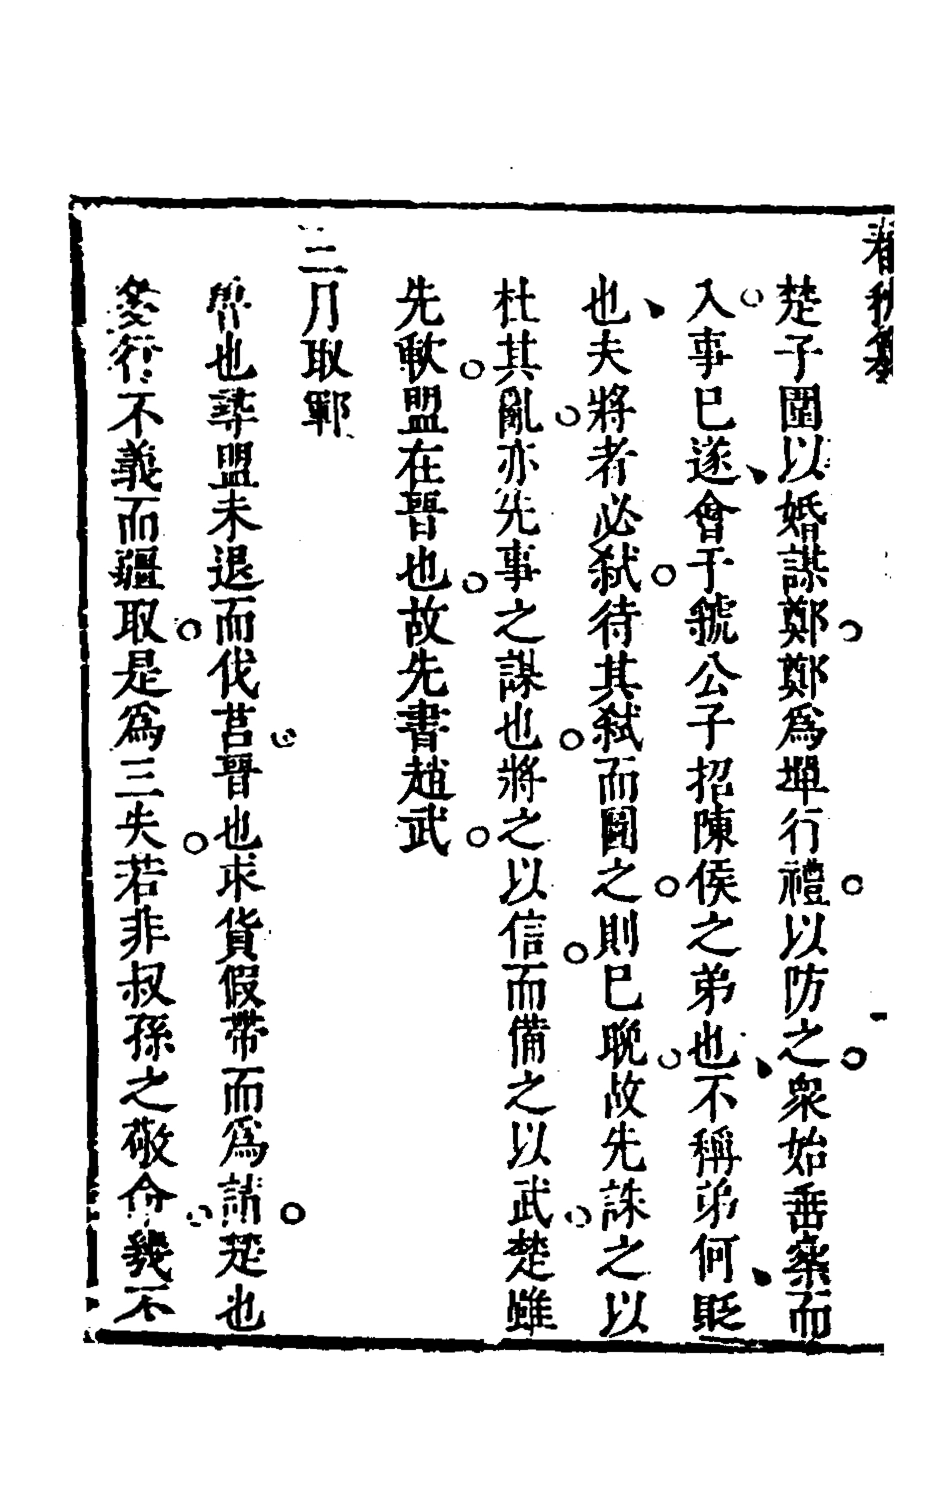 春秋纂
楚子圍以婚謀鄭鄭爲墠行禮以防之衆始垂橐而
入事巳遂會于虢公子招陳侯之弟也不稱弟何貶
也夫將者必弑待其弑而圖之則巳晚故先誅之以
杜其亂亦先事之謀也將之以信而備之以武楚雖
先歃盟在晉也故先書趙武
三月取鄆
魯也尋盟未退而伐莒晉也求貨假帶而爲請楚也
爰行不義而疆取是爲三失若非叔孫之敬命幾不